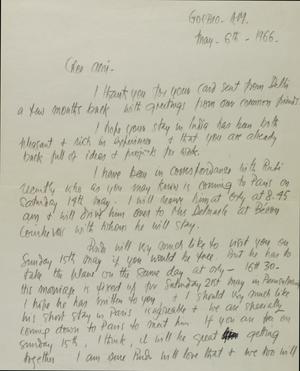 GORBIO - A.M.
May - 6th - 1966.
Cher ami -
I thank you for your card sent from Delhi
a few months back with greetings from our common friends
I hope your stay in India has been both
pleasant & rich in experience & that you are already
back full of ideas & projects for work.
I have been in correspondance with
recently who as you may know is coming to Paris on
Saturday 14th May. I will receive him at Orly at 8.45
am and will drive him over to Mr at
with whom he will stay.
will very much like to visit you on
Sunday 15th May if you would be free. But he has to
take the plane on the same day at Orly - 16H 30 -
his marriage is fixed up for Saturday 21st May in
I hope he has written to you & I should very much like
his short stay in Paris is agreable & we are specially
coming down to Paris to meet him. If you are free on
Sunday 15th, I think, it will be great getting
together I am sure will love that & we too will